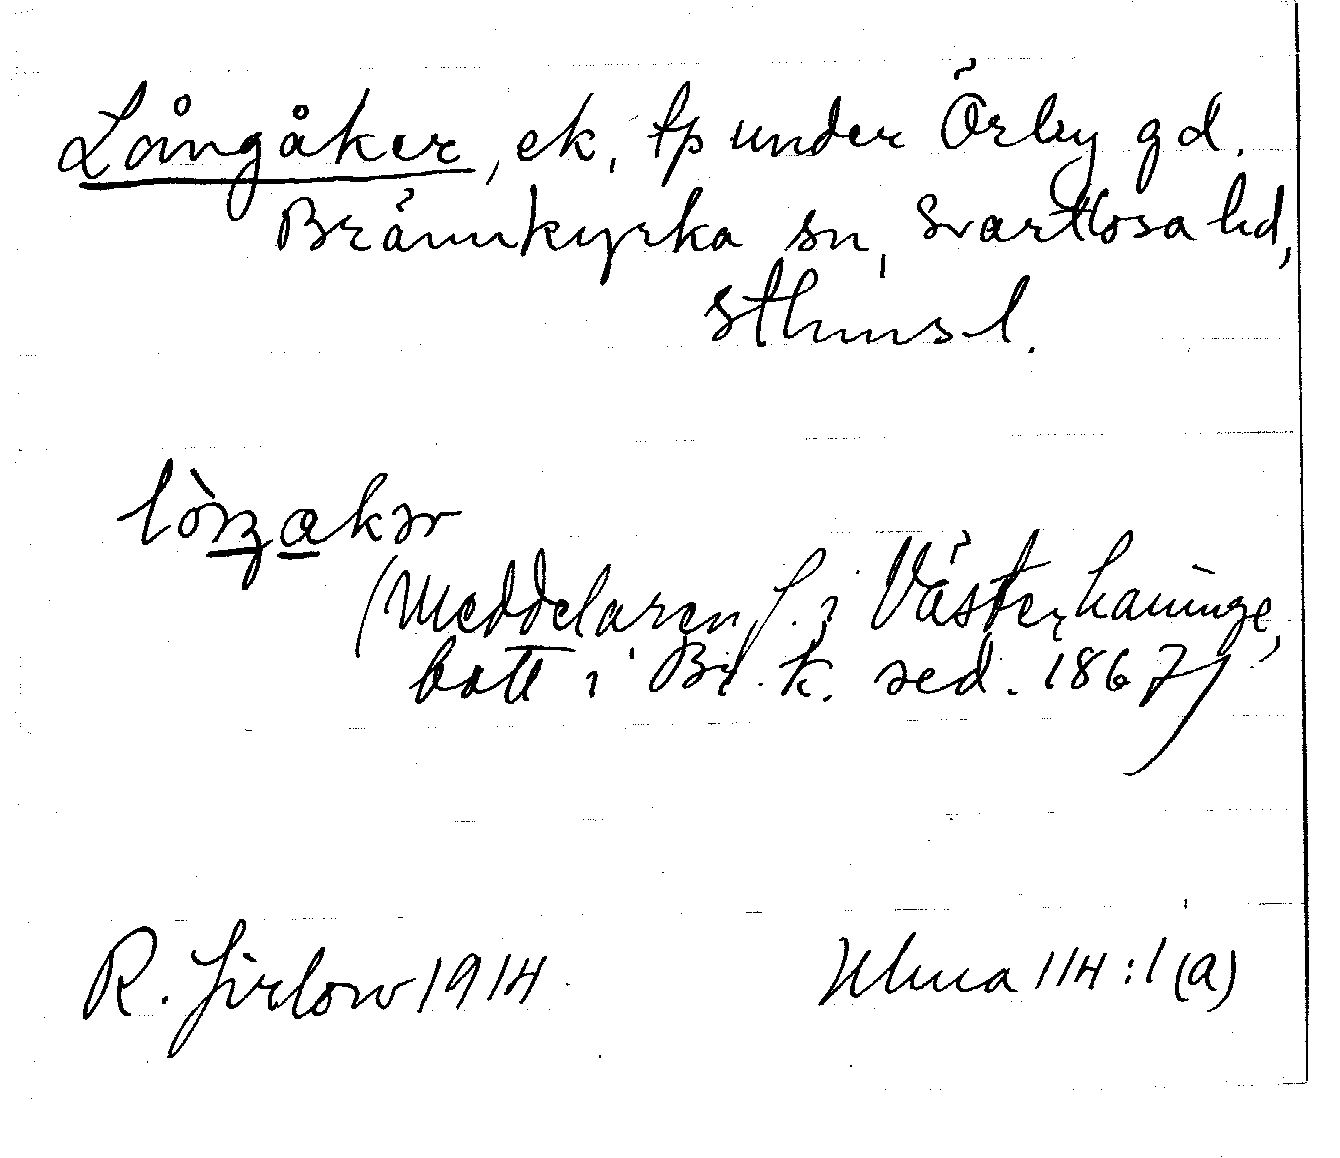 Långåker, ek, tp under Örby gd.
Brännkyrka sn, Svartlösa hd,
Sthms l.
lòŋakər
(Meddelaren f. i Västerhaninge,
bott i Br. k. sed. 1867)
R. Jirlow 1914 Ulma 114:1(a)